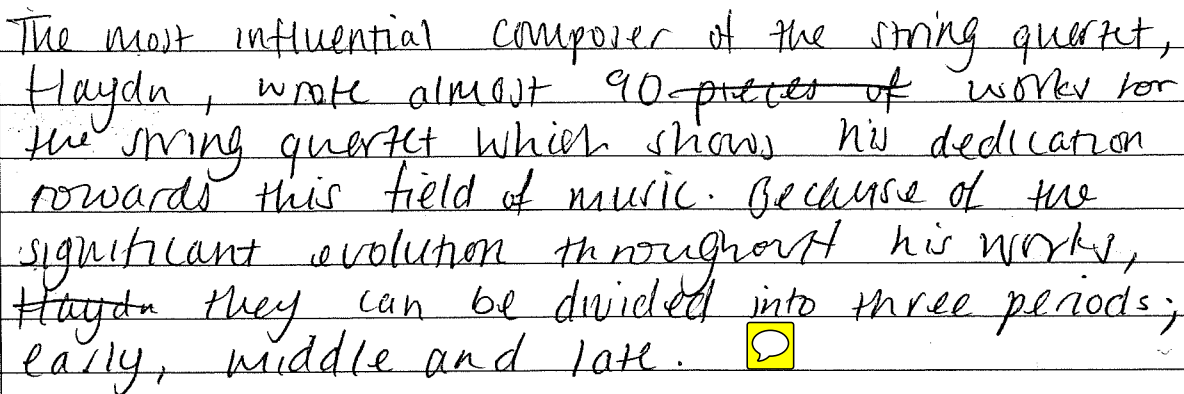 The most influential composer of the string quertet,
Haydn, wrote almost 90 pieces of works for
the string quertet which shows his dedication
towards this field of music. Because of the
significant evolution throughout his works,
Haydn they can be divided into three periods;
early, middle and late.